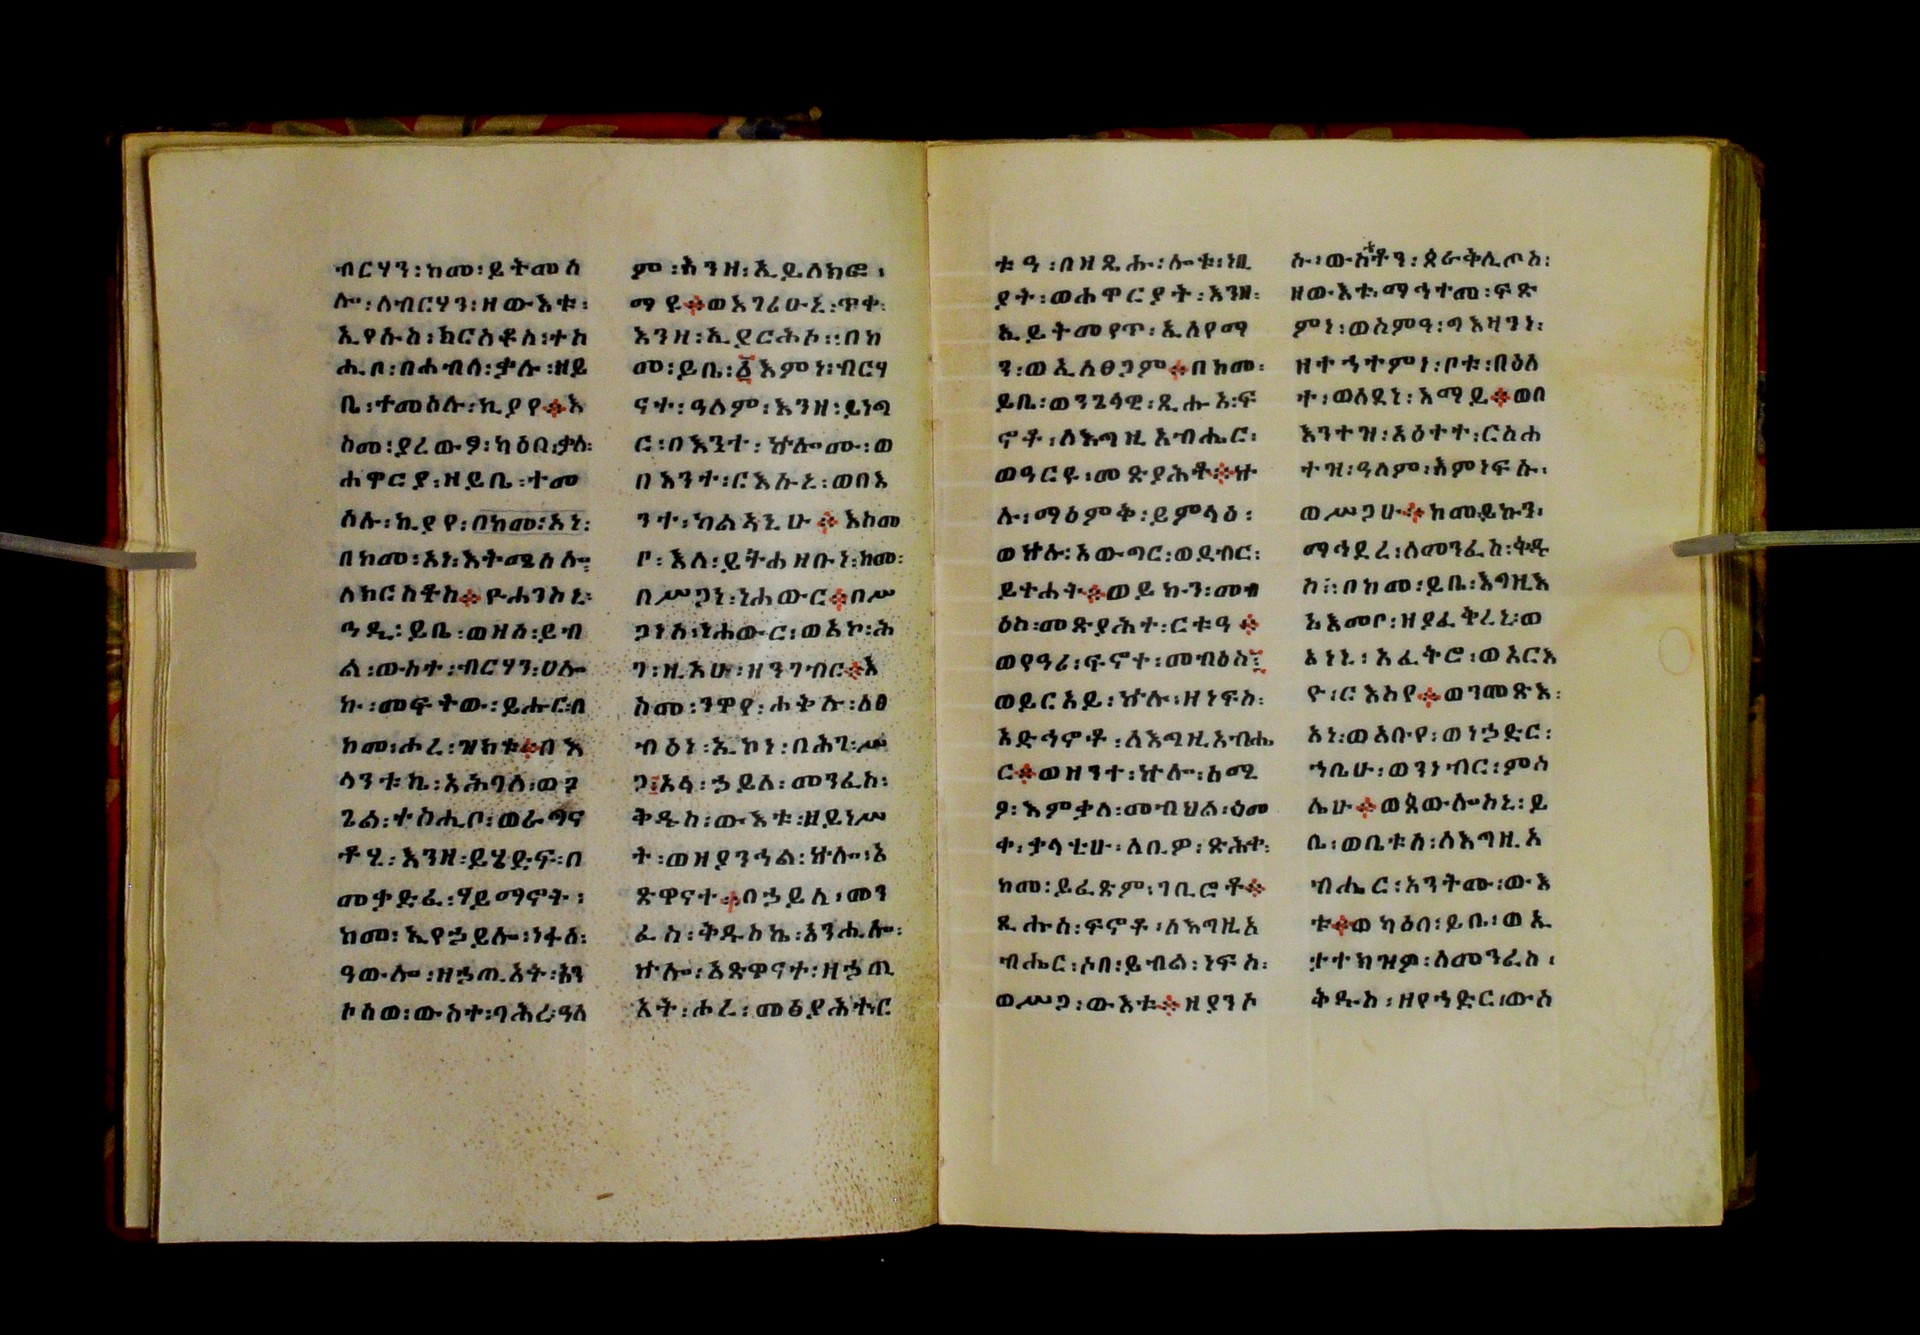 ብርሃን፡ከመ፡ይትመስ
ሎ፡ለብርሃን፡ዘውእቱ፡
ኢየሱስ፡ክርስቶስ፡ተስ
ሒቦ፡በሐብለ፡ቃሉ፡ዘይ
ቤ፡ተመሰሉ፡ኪያየ፨እ
ስመ፡ያሬውፃ፡ካዕበ፡ቃለ፡
ሐዋርያ፡ዘይቤ፡ተመ
ሰሉ፡ኪያየ፡በከመ፡አነ፡
በከመ፡አነ፡እትሜሰሎ፡
ለክርስቶስ፨ዮሐንስኒ፡
ዓዲ፡ይቤ፡ወዘሰ፡ይብ
ል፡ውስተ፡ብርሃን፡ሀሎ
ኩ፡መፍትው፡ይሑር፡በ
ከመ፡ሖረ፡ዝክቱ፨በእ
ላንቱኬ፡አሕባለ፡ወን
ጌል፡ተስሒቦ፡ወራግና
ቶሂ፡እንዘ፡ይሄድፍ፡በ
መቃድፈ፡ሃይማኖት፡
ከመ፡ኢየኃይሎ፡ነፋሰ፡
ዓውሎ፡ዘኃጢአት፡አን
ኮሰወ፡ውስተ፡ባሕረ፡ዓለ
ም፡እንዘ፡ኢይለክፎ፡
ማይ፨ወእገሪሁኒ፡ጥቀ፡
እንዘ፡ኢይርሕሶ፡፡በከ
መ፡ይቤ፡፩እምነ፡ብርሃ
ናተ፡ዓለም፡እንዘ፡ይነግ
ር፡በእንተ፡ኵሎሙ፡ወ
በእንተ፡ርእሱኒ፡ወበእ
ንተ፡ካልኣኒሁ፨እስመ
ቦ፡እለ፡ይትሐዘቡነ፡ከመ፡
በሥጋነ፡ነሐውር፨በሥ
ጋነሰ፡ነሐውር፡ወአኮ፡ሕ
ገ፡ዚአሁ፡ዘንገብር፨እ
ስመ፡ንዋየ፡ሐቅሉ፡ለፀ
ብዕነ፡ኢኮነ፡በሕገ፡ሥ
ጋ፡አላ፡ኃይለ፡መንፈስ፡
ቅዱስ፡ውእቱ፡ዘይነሥ
ት፡ወዘያንኅል፡ኵሎ፡አ
ጽዋናተ፨በኃይለ፡መን
ፈስ፡ቅዱስኬ፡አንሒሎ፡
ኵሎ፡አጽዋናተ፡ዘኃጢ
አት፡ሖረ፡መፅያሕተ፡ር
ቱዓ፡በዘጼሑ፡ሎቱ፡ነቢ
ያት፡ወሐዋርያት፡እንዘ፡
ኢይትመየጥ፡ኢለየማ
ን፡ወኢለፀጋም፨በከመ፡
ይቤ፡ወንጌላዊ፡ጺሑአ፡ፍ
ኖቶ፡ለእግዚአብሔር፡
ወዓርዩ፡መጽያሕቶ፨ኵ
ሉ፡ማዕምቅ፡ይምላዕ፡
ወኵሉ፡አውግር፡ወደብር፡
ይተሐት፨ወይኩን፡መብ
ዕስ፡መጽያሕተ፡ርቱዓ፨
ወየዓሪ፡ፍኖተ፡መብዕስ፡
ወይርአይ፡ኵሉ፡ዘነፍስ፡
አድኅኖቶ፡ለእግዚአብሔ
ር፨ወዘንተ፡ኵሎ፡ሰሚ
ዖ፡እምቃለ፡መብህል፡ዕመ
ቀ፡ቃላቲሁ፡ለቢዎ፡ጽሕቀ፡
ከመ፡ይፈጽም፡ገቢሮቶ፨
ጺሑሰ፡ፍኖቶ፡ለእግዚአ
ብሔር፡ሶበ፡ይብል፡ነፍስ፡
ወሥጋ፡ውእቱ፨ዘያንኦ
ሱ፡ውስቶን፡ጰራቅሊጦስ፡
ዘውእቱ፡ማኅተመ፡ፍጽ
ምነ፡ወስምዓ፡ግእዛንነ፡
ዘተኅተምነ፡ቦቱ፡በዕለ
ት፡ወለደነ፡እማይ፨ወበ
እንተዝ፡አዕተተ፡ርስሐ
ተዝ፡ዓለም፡እምነፍሱ፡
ወሥጋሁ፨ከመይኩን፡
ማኅደረ፡ለመንፈስ፡ቅዱ
ስ፡፡በከመ፡ይቤ፡እግዚእ
አእመሮ፡ዘያፈቅረኒ፡ወ
አነኒ፡አፈትሮ፡ወእርእ
ዮ፡ርእስየ፨ወንመጽእ፡
አነ፡ወአቡየ፡ወነኃድር፡
ኀቤሁ፡ወንነብር፡ምስ
ሌሁ፨ወጳውሎስኒ፡ይ
ቤ፡ወቤቱሰ፡ለእግዚአ
ብሔር፡አንትሙ፡ውእ
ቱ፨ወካዕበ፡ይቤ፡ወኢ
ታተክዝዎ፡ለመንፈስ፡
ቅዱስ፡ዘየኀድር፡ውስ